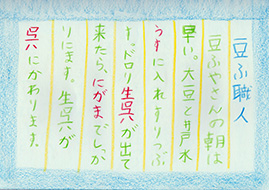 豆ふ職人
豆ふやさんの朝は
早い。大豆と井戸水
うすに入れすりつぶ
す。ドロリ生呉が出て
来たら、にがまでしっか
りにます。生呉が
呉にかわります。